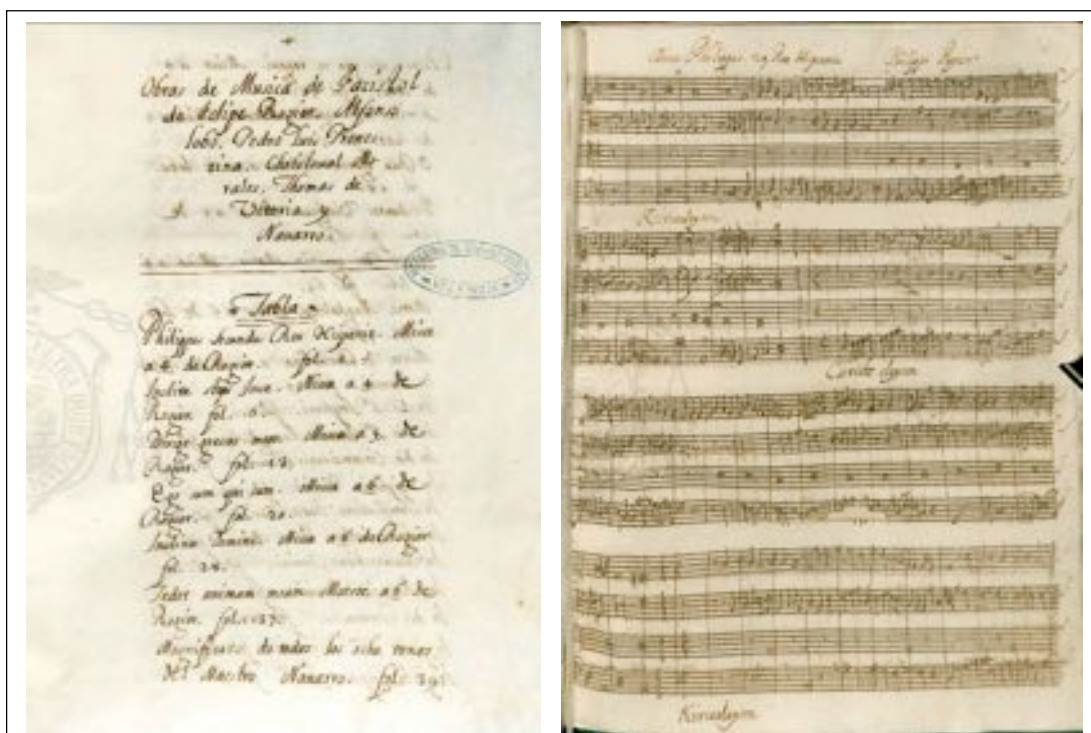 Obras de Musica de Facistol
de Felipe Rogier. Alfonso
lobo. Pedro Luis Prenes
tina. Christoval Mo
rales. Thomas de
Vitoria y
Navarro.
Tabla
Philippus secundus Rex Hispaniæ. Missa
a 4. de Rogier. fol. 1.
Inclita stirps Jesse. Missa a 4 de
Rogier fol. 6.
Dirige gressus meos. Missa a 5 de
Rogier. fol. 13.
Ego sum qui sum. Missa a 6 de
Rogier. fol. 20.
Inclina Domine. Missa a 6 de Rogier
fol. 28.
animam meam. Motete a 6 de
Rogier. fol.
Magnificats de todos los ocho tonos
del Maestro Navarro. fol. 39
Philippus Rex Hispaniæ Philippe Rogier
Kirieeleyson
Christe eleyson
Kirieeleyson